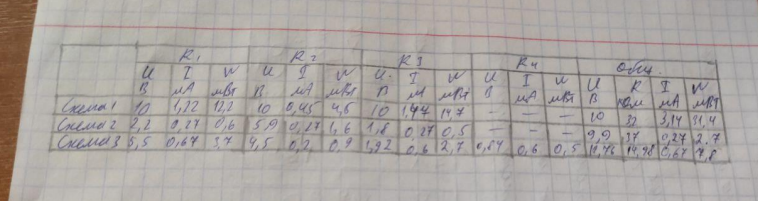 R1 R2 R3 R4 Общ.
U I W U I W U I W U I W U R I W
В мА мВт В мА мВт В мА мВт В мА мВт В кОм мА мВт
Схема 1 10 1,22 12,2 10 0,45 4,5 10 1,47 14,7 — — — 10 3,14 31,4
Схема 2 2,2 0,27 0,6 5,9 0,27 1,6 1,8 0,27 0,5 — — — 9,9 37 0,27 2.7
Схема 3 5,5 0,67 3,7 4,5 0,2 0,9 0,6 2,7 0,84 0,6 0,5 14,98 0,67 7,8